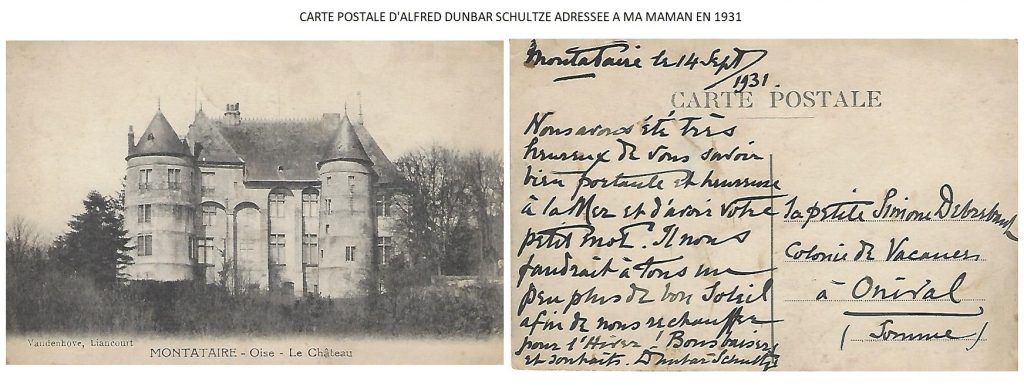 CARTE POSTALE D'ALFRED DUNBAR SCHULTZE ADRESSEE A MA MAMAN EN 1931
Vandenhove, Liancourt
MONTATAIRE - Oise - Le Château
Montataire le 14 Sept
1931.
CARTE POSTALE
Nous avons été très
heureux de vous savoir
bien portante et heureuse
à la Mer et d'avoir votre
petit mot. Il nous
faudrait à tous un
peu plus de bon Soleil
afin de nous réchauffer
pour l'Hiver! Bons baisers
et souhaits. Dunbar Schultze
La petite Simone
Colonie de Vacances
à Onival
(Somme)